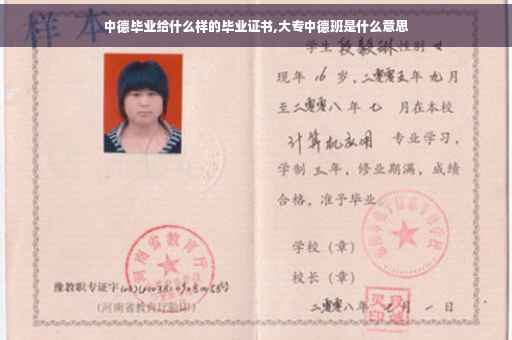 中德毕业给什么样的毕业证书,大专中德班是什么意思
样本
学生 段毅琳 性别 女
现年 16 岁，二零零五年 九月
至二零零八年 七 月在本校
计算机应用 专业学习，
学制 三 年，修业期满，成绩
合格，准予毕业
学校（章）
校长（章）
二零零八年 七 月 一 日
河南省教育厅
豫教职专证字
(河南省教育厅验印)